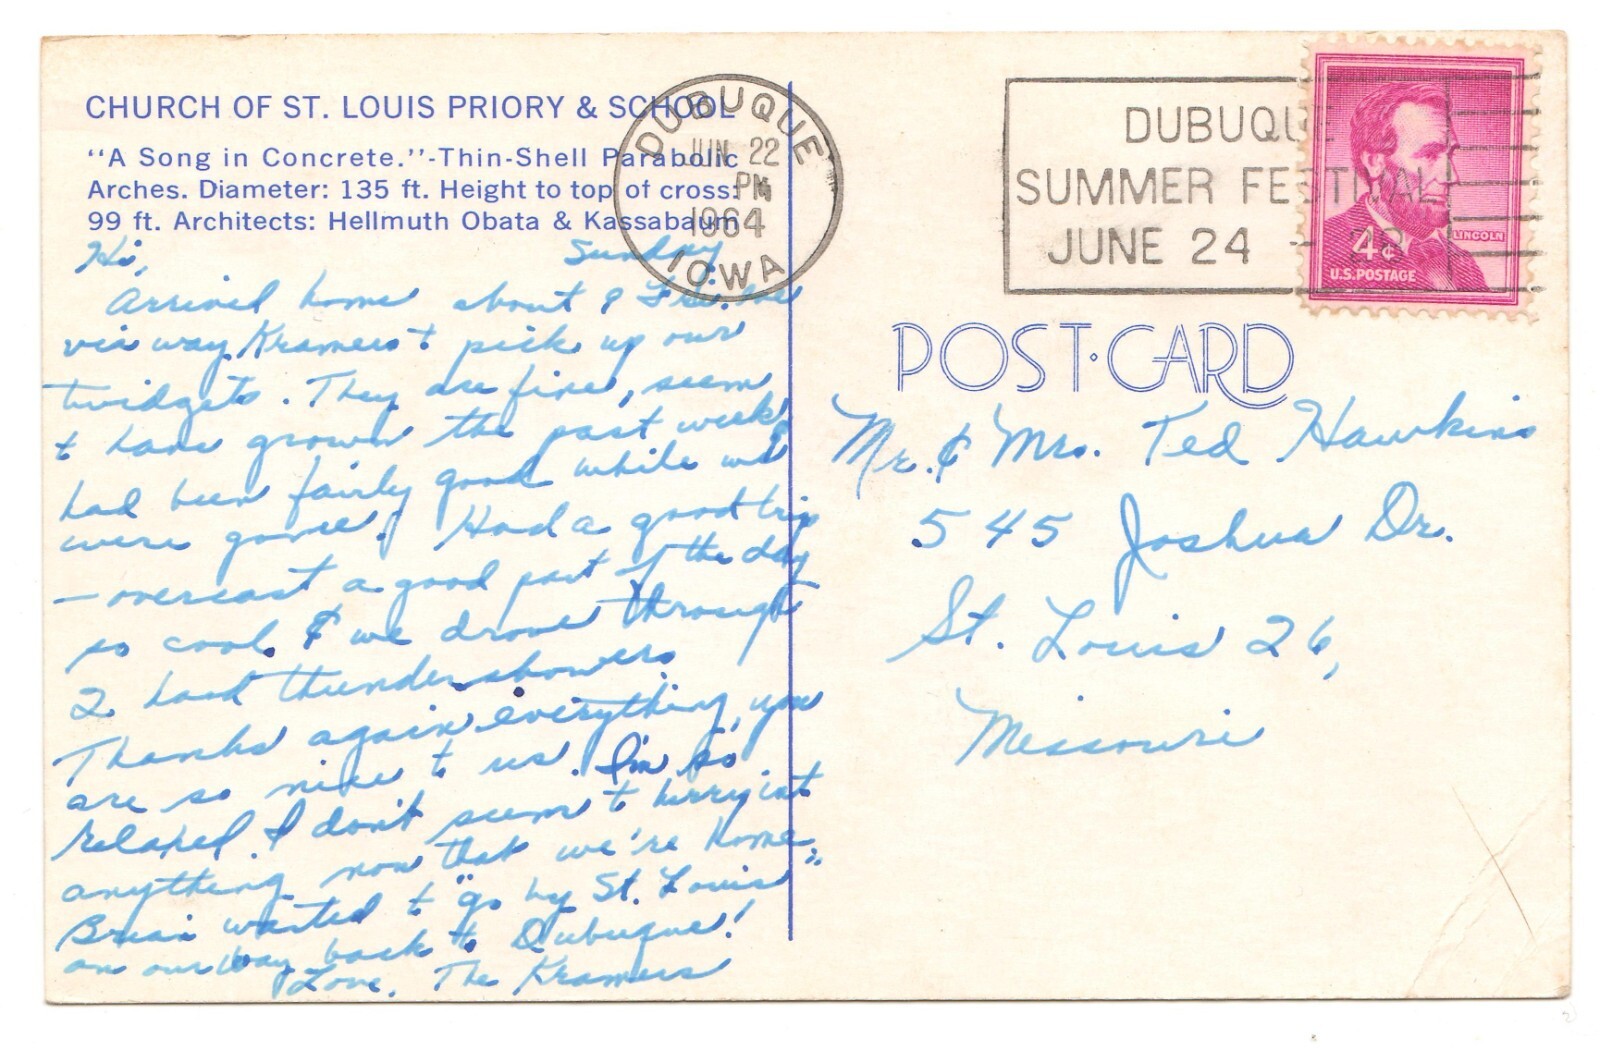 CHURCH OF ST. LOUIS PRIORY & SCHOOL
"A Song in Concrete."-Thin-Shell Parabolic
Arches. Diameter: 135 ft. Height to top of cross:
99 ft. Architects: Hellmuth Obata & Kassabaum
Hi, Sunday
Arrived home about 8 Fri.
via way Kramers + pick up our
twidgets. They are fine, seem
t have grown the past week
had been fairly good while we
were gone! Had a good trip
— overcast a good part of the day
so cool. & we drove through
2 hard thundershowers.
Thanks again everything, you
are so nice t us. I'm so
relaxed I don't seem t hurry int
anything now that we're home.
Brian wanted t "go by St. Louis"
on our way back to Dubuque!
Love, The Kramers
DUBUQUE
JUN 22
PM
1964
IOWA
DUBUQUE
SUMMER FESTIVAL
JUNE 24 - 28
4¢
LINCOLN
U.S. POSTAGE
POST·CARD
Mr. & Mrs. Ted Hawkins
545 Joshua Dr.
St. Louis 26,
Missouri